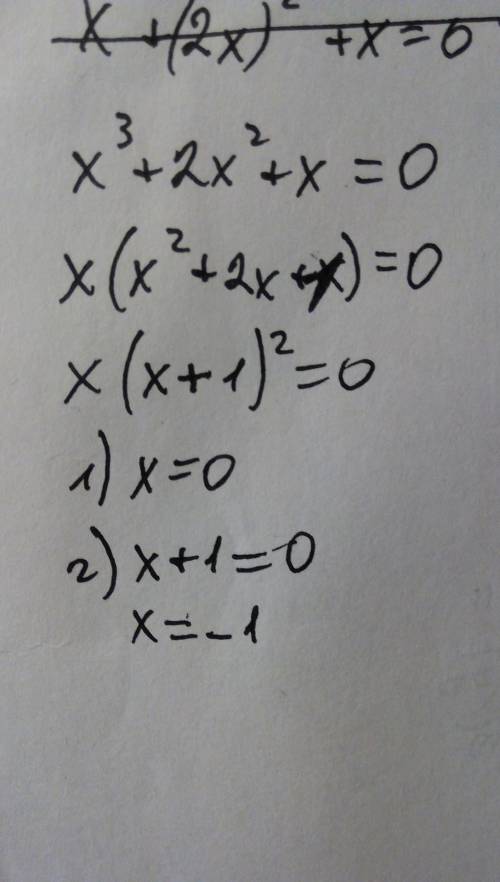 x +(2x)² +x=0
x³+2x²+x=0
x(x²+2x+1)=0
x(x+1)²=0
1) x=0
2) x+1=0
x=-1